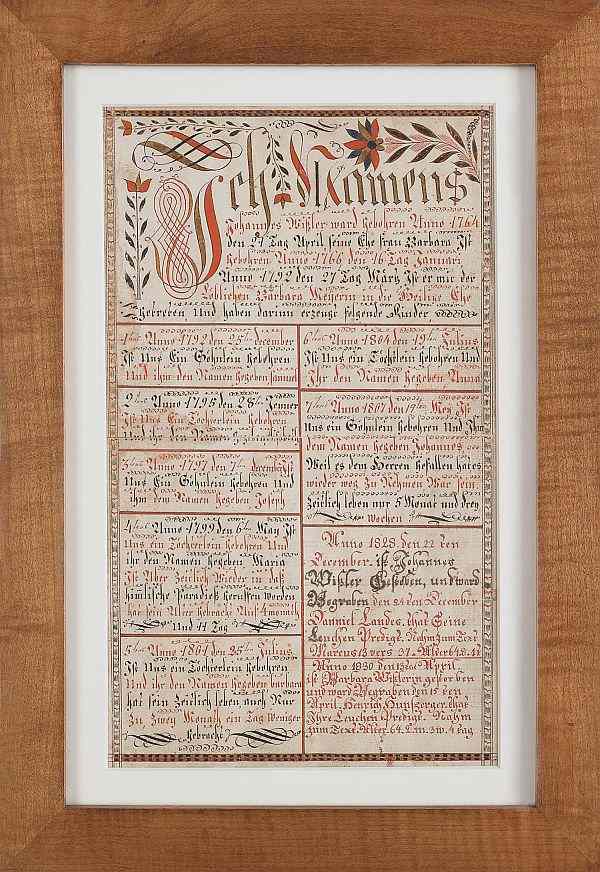 Ich Namens
Johannes Wißler ward Gebohren Anno 1764
den 27 Tag April seine Ehe frau Barbara Ist
Gebohren Anno 1766 den 16 Tag Januari
Anno 1792 den 27 Tag Martz Ist er mit der
Loblichen Barbara Meyerin in die Heilige Ehe
Getretten Und haben darinn erzeugt folgende Kinder
1 Anno 1792 den 25ten december
Ist Uns Ein Söhnlein Gebohren
Und ihm den Namen Gegeben Samuel
2 Anno 1795 den 28ten Jenner
Ist Uns Ein Tochterlein Gebohren
Und ihr den Namen
3 Anno 1797 den 7ten december Ist
Uns Ein Söhnlein Gebohren Und
ihm dem Namen Gegeben Joseph
4 Anno 1799 den 6ten May Ist
Uns ein Tochterlein Gebohren Und
ihr den Namen Gegeben Maria
Ist Aber Zeitlich Wieder in daß
himlische Paradieß Geruffen worden
hat sein Alter Gebracht Auf 4 monath
Und 11 Tag
5 Anno 1801 den 25ten Julius
Ist Uns Ein Tochterlein Gebohren
Und ihr den Namen Gegeben barbara
hat sein Zeitlich leben auch Nur
Zu Zwey Monath ein Tag Weniger
Gebracht
6 Anno 1804 den 19ten Julius
Ist Uns ein Tochterlein Gebohren Und
Ihr den Namen Gegeben Anna
7 Anno 1807 den 14ten May Ist
Uns ein Söhnlein Gebohren Und Ihm
dem Namen Gegeben Johannes
Weil es dem Herren Gefallen hat es
wieder weg Zu Nehmen War sein
Zeitlich leben nur 5 Monat und drey
wochen
Anno 1828 den 22 ten
December ist Johannes
Wißler Gestorben, und ward
Begraben den 24 ten December
Danniel Landes, that Seine
Leuchen Predigt. Nahm zum Text
Marcus 13 vers 37. Alter 64. 8.
Anno 1830 den 13 ten April
ist Barbara Wißlerin gestorben
und ward Begraben den 15 ten
April. Henrich Hunsperger, that
Ihre Leuchen Predigt. Nahm
zum Text. Alter 64. 2. m. 3 w. 4 tag